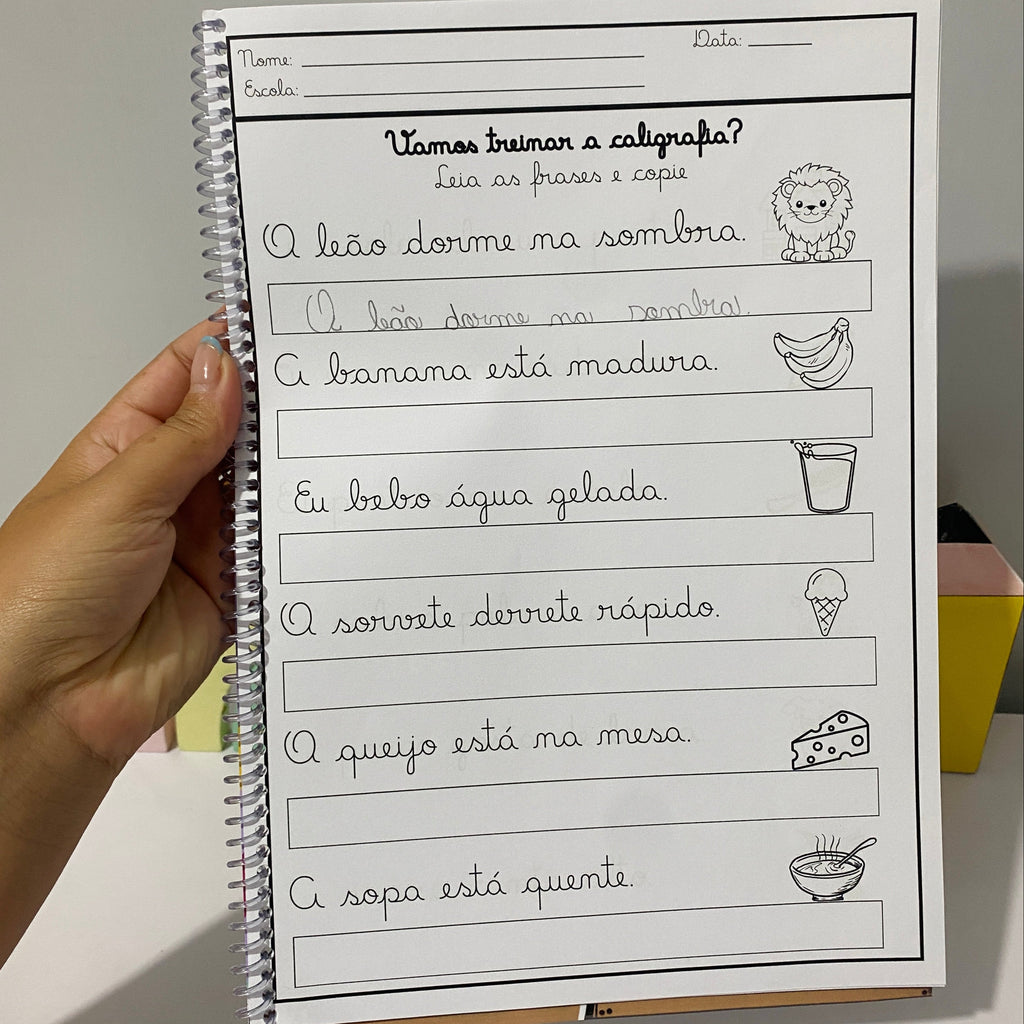 Data:
Nome:
Escola:
Vamos treinar a caligrafia?
Leia as frases e copie
O leão dorme na sombra.
O leão dorme na sombra.
A banana está madura.
Eu bebo água gelada.
O sorvete derrete rápido.
O queijo está na mesa.
A sopa está quente.